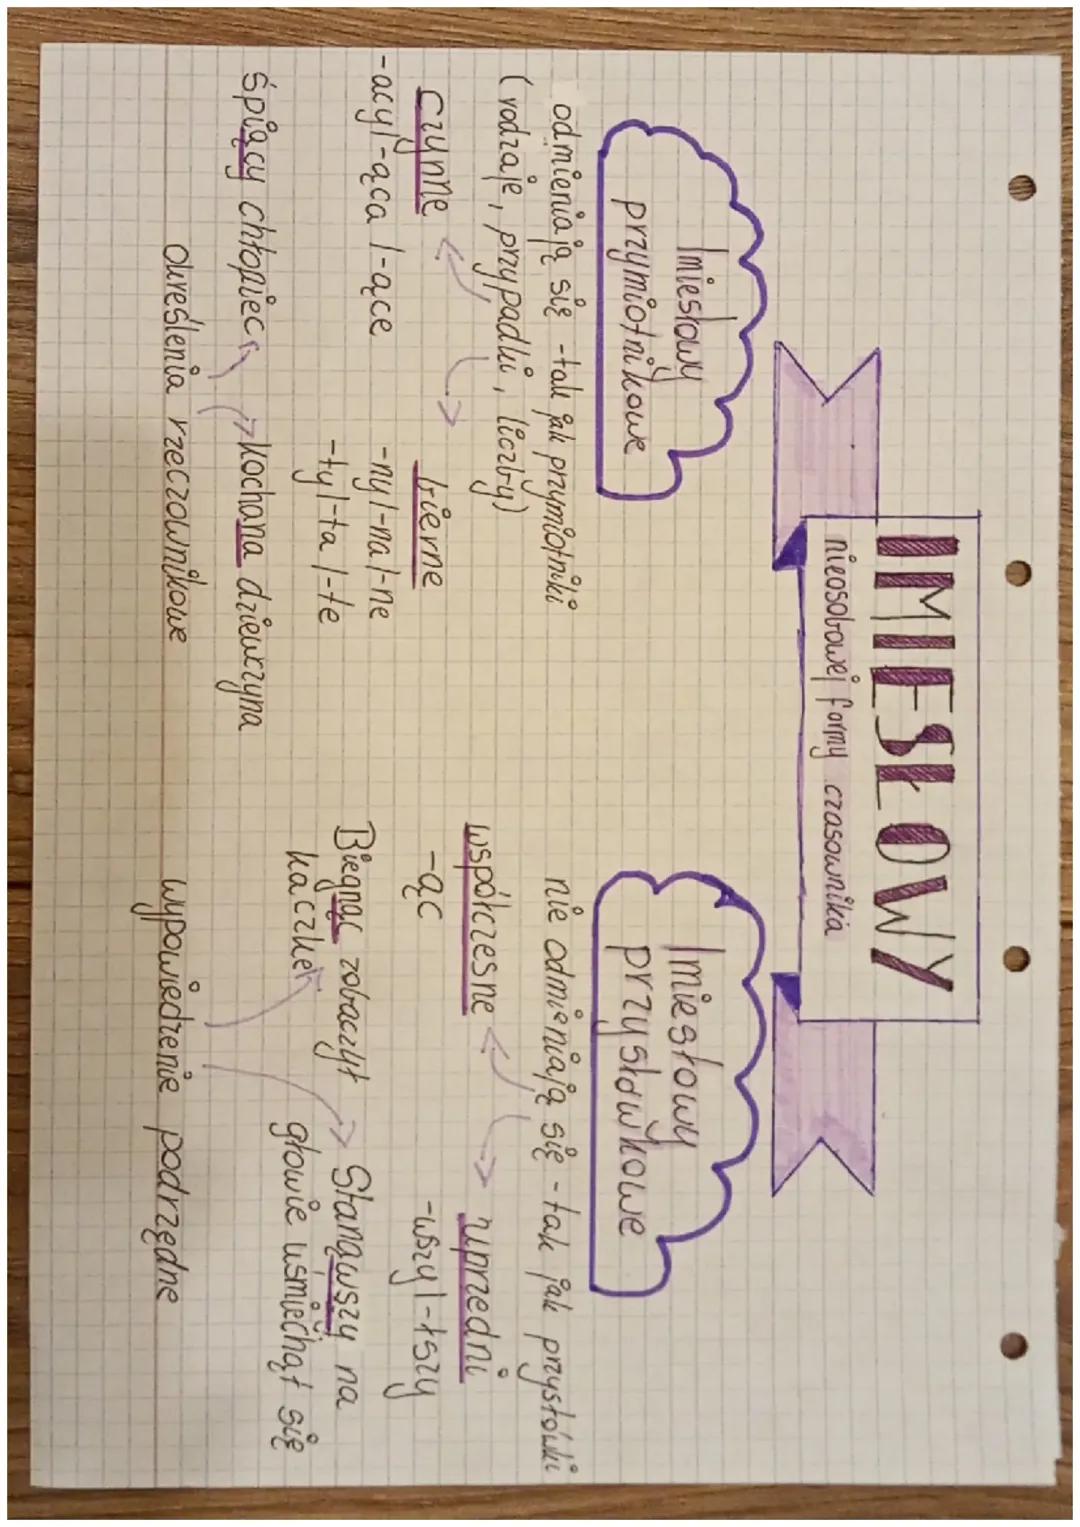 IMIESŁOWY
nieosobowej formy czasownika
Imiesłowy
przymiotnikowe
odmieniają się - tak jak przymiotniki
(rodzaje, przypadki, liczby)
czynne
-ący/-ąca/-ące
bierne
-ny/-na/-ne
-ty/-ta/-te
śpiący chłopiec
kochana dziewczyna
określenia rzeczownikowe
Imiesłowy
przysłówkowe
nie odmieniają się - tak jak przysłówki
współczesne
-ąc
uprzedni
-wszy/-łszy
Biegnąc zobaczył
kaczkę
Stanąwszy na
głowie uśmiechął się
wypowiedzenie podrzędne